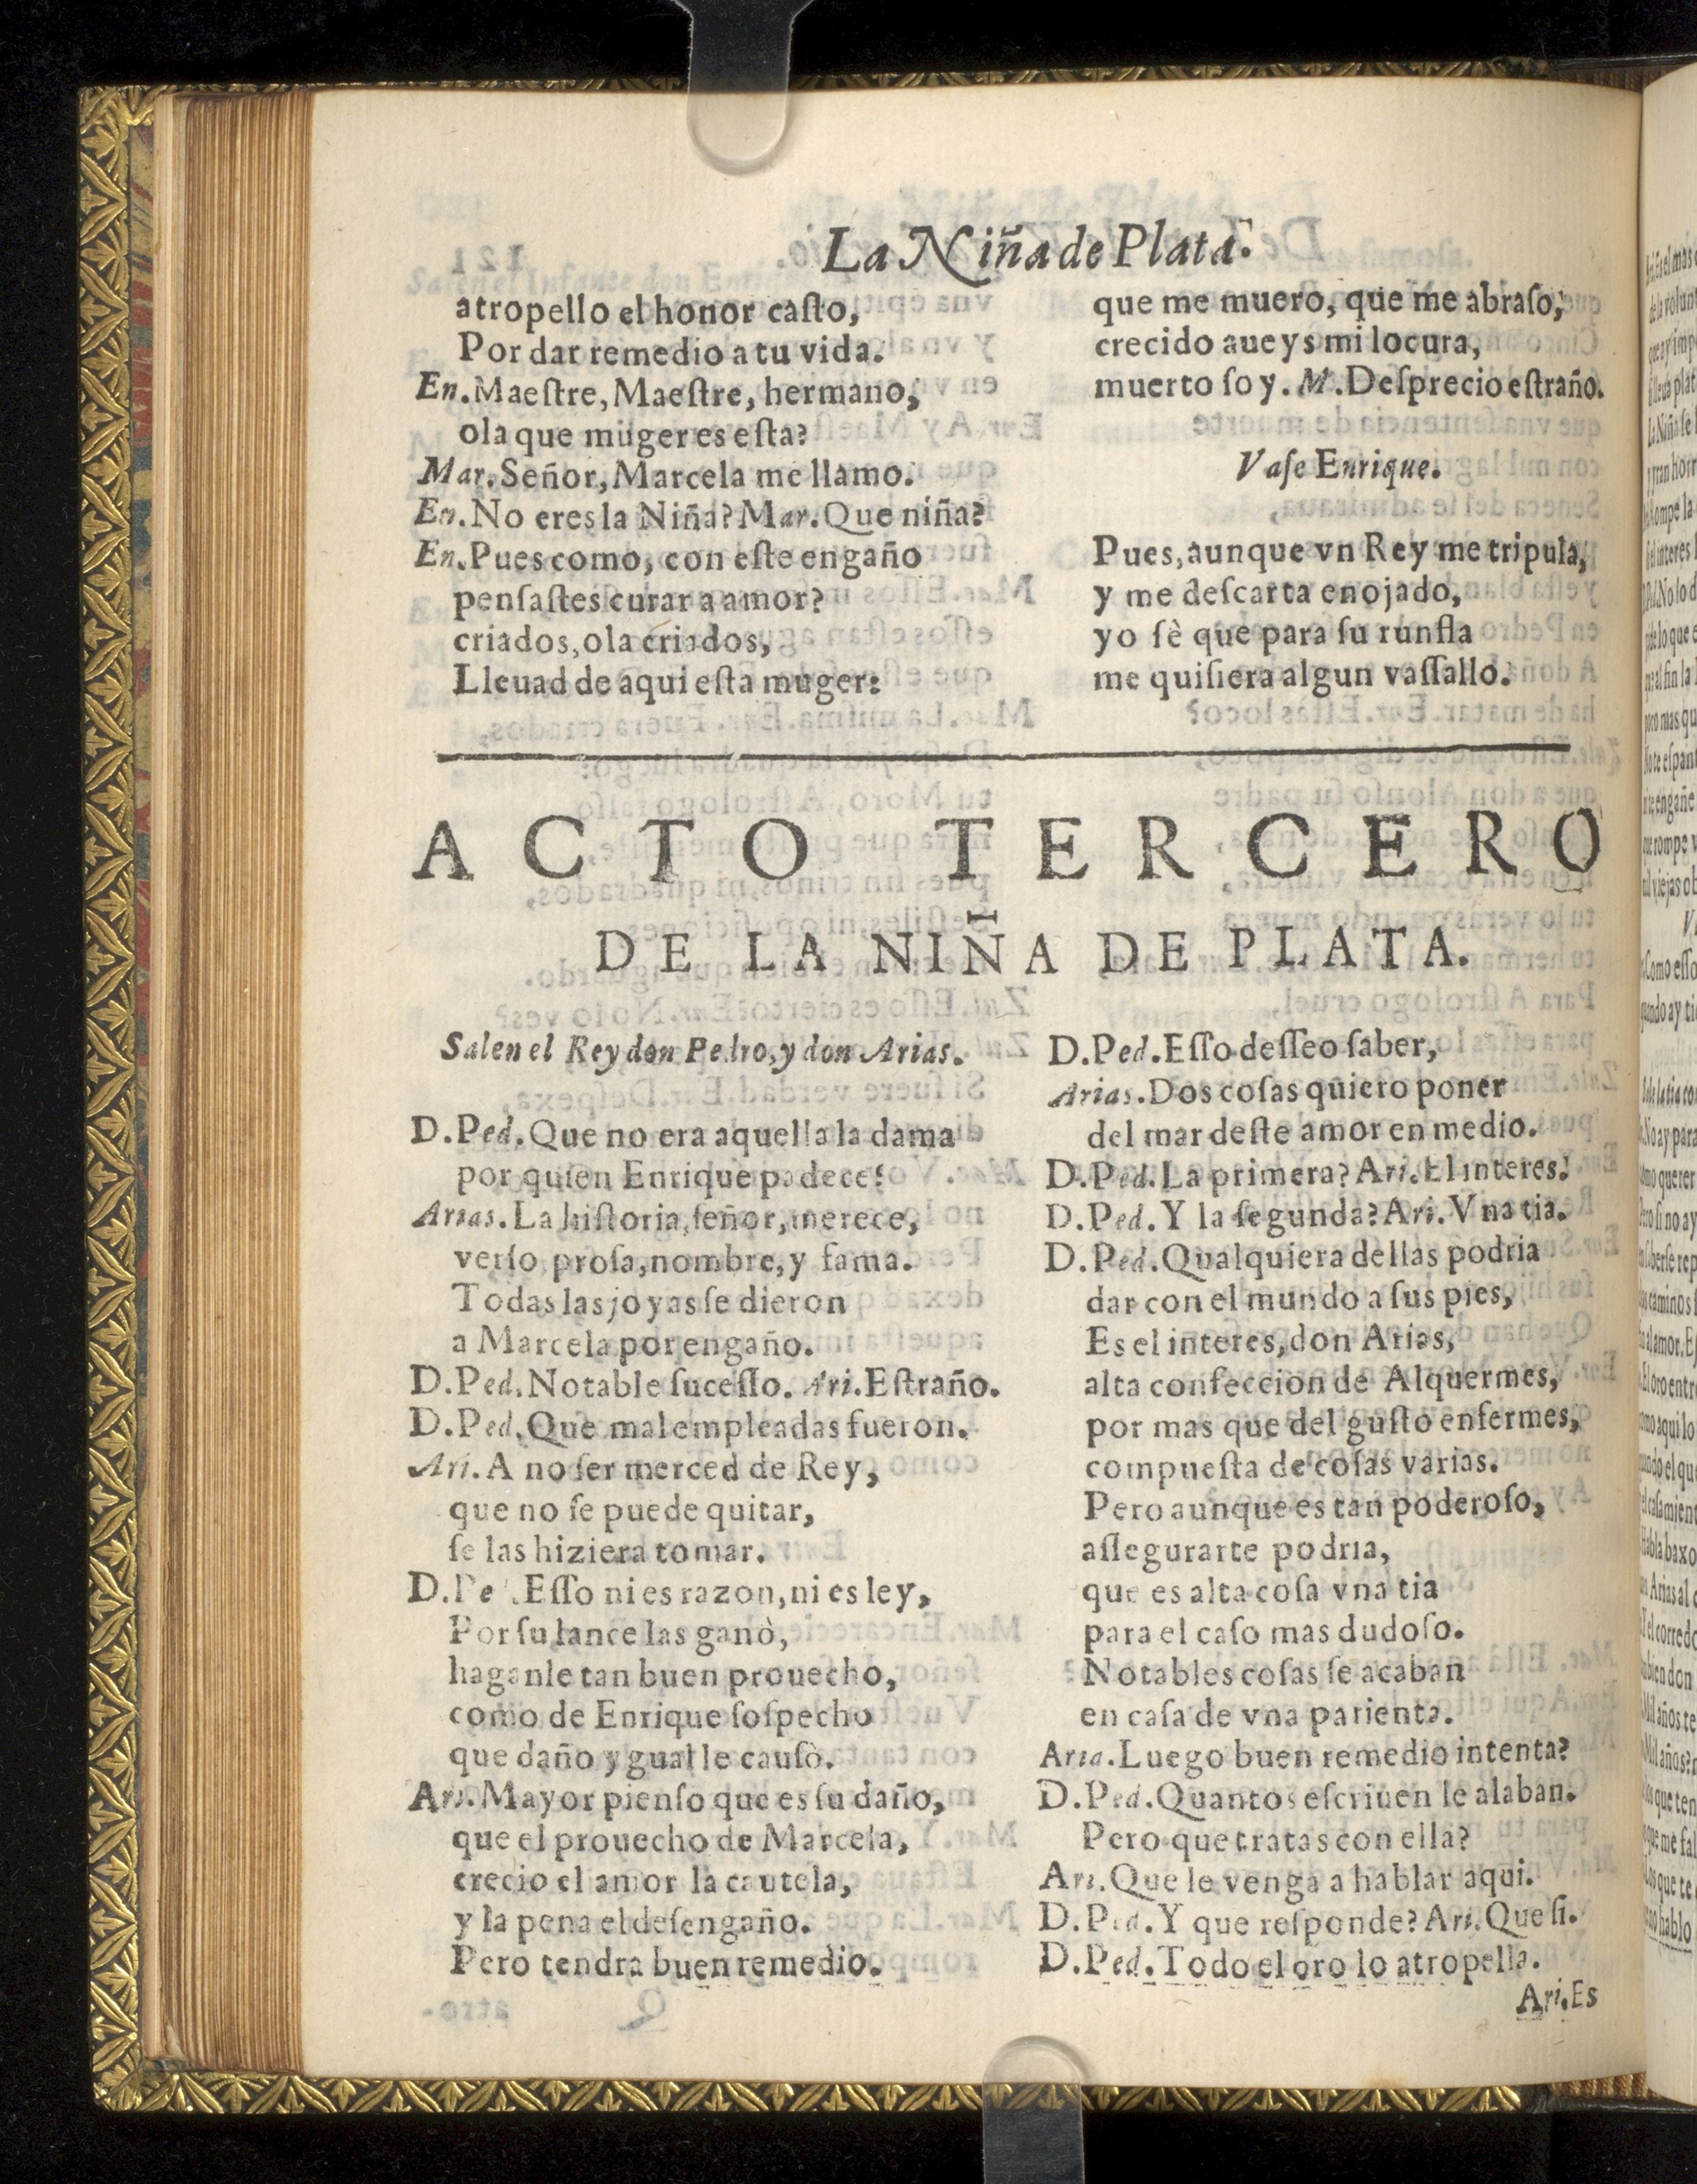 La Niña de Plata.
atropello el honor caſto,
Por dar remedio a tu vida.
En. Maeſtre, Maeſtre, hermano,
ola que muger es eſta?
Mar. Señor, Marcela me llamo.
En. No eres la Niña? Mar. Que niña?
En. Pues como, con eſte engaño
penſaſtes curar a amor?
criados, ola criados,
Lleuad de aqui eſta muger:
que me muero, que me abraſo,
crecido aueys mi locura,
muerto ſoy. M. Deſprecio eſtraño.
Vaſe Enrique.
Pues, aunque vn Rey me tripula,
y me deſcarta enojado,
yo ſè que para ſu runfla
me quiſiera algun vaſſallo.
ACTO TERCERO
DE LA NIÑA DE PLATA.
Salen el Rey don Pedro, y don Arias.
D.Ped. Que no era aquella la dama
por quien Enrique padece?
Arias. La hiſtoria, ſeñor, merece,
verſo proſa, nombre, y fama.
Todas las joyas ſe dieron
a Marcela por engaño.
D.Ped. Notable ſuceſſo. Ari. Eſtraño.
D.Ped. Que mal empleadas fueron.
Ari. A no ſer merced de Rey,
que no ſe puede quitar,
ſe las hiziera tomar.
D.Pe. Eſſo ni es razon, ni es ley,
Por ſu lance las ganò,
haganle tan buen prouecho,
como de Enrique ſoſpecho
que daño ygual le causò.
Ari. Mayor pienſo que es ſu daño,
que el prouecho de Marcela,
crecio el amor la cautela,
y la pena el deſengaño.
Pero tendra buen remedio.
D.Ped. Eſſo deſſeo ſaber,
Arias. Dos coſas quiero poner
del mar deſte amor en medio.
D.Ped. La primera? Ari. El interes.
D.Ped. Y la ſegunda? Ari. Vna tia.
D.Ped. Qualquiera dellas podria
dar con el mundo a ſus pies,
Es el interes, don Arias,
alta confeccion de Alquermes,
por mas que del guſto enfermes,
compueſta de coſas varias.
Pero aunque es tan poderoſo,
aſſegurarte podria,
que es alta coſa vna tia
para el caſo mas dudoſo.
Notables coſas ſe acaban
en caſa de vna parienta.
Aria. Luego buen remedio intenta?
D.Ped. Quantos eſcriuen le alaban.
Pero que tratas con ella?
Ari. Que le venga a hablar aqui.
D.Ped. Y que reſponde? Ari. Que ſi.
D.Ped. Todo el oro lo atropella.
Ari. Es